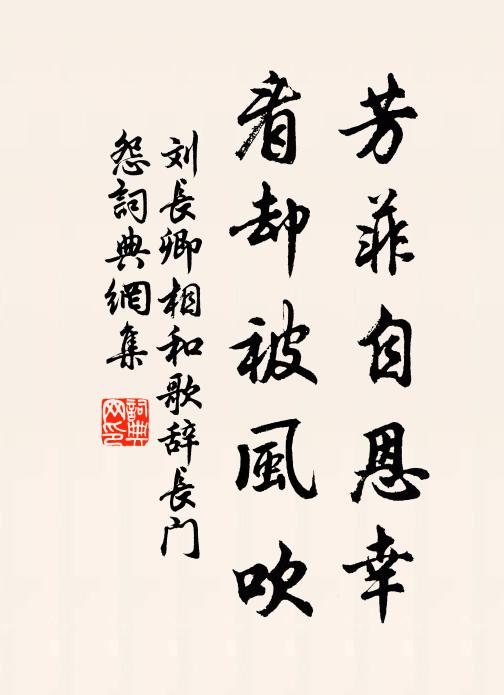 芳菲自恩幸
看却被風吹
刘長卿相和歌辞長门
怨詞典網集
詞典网印